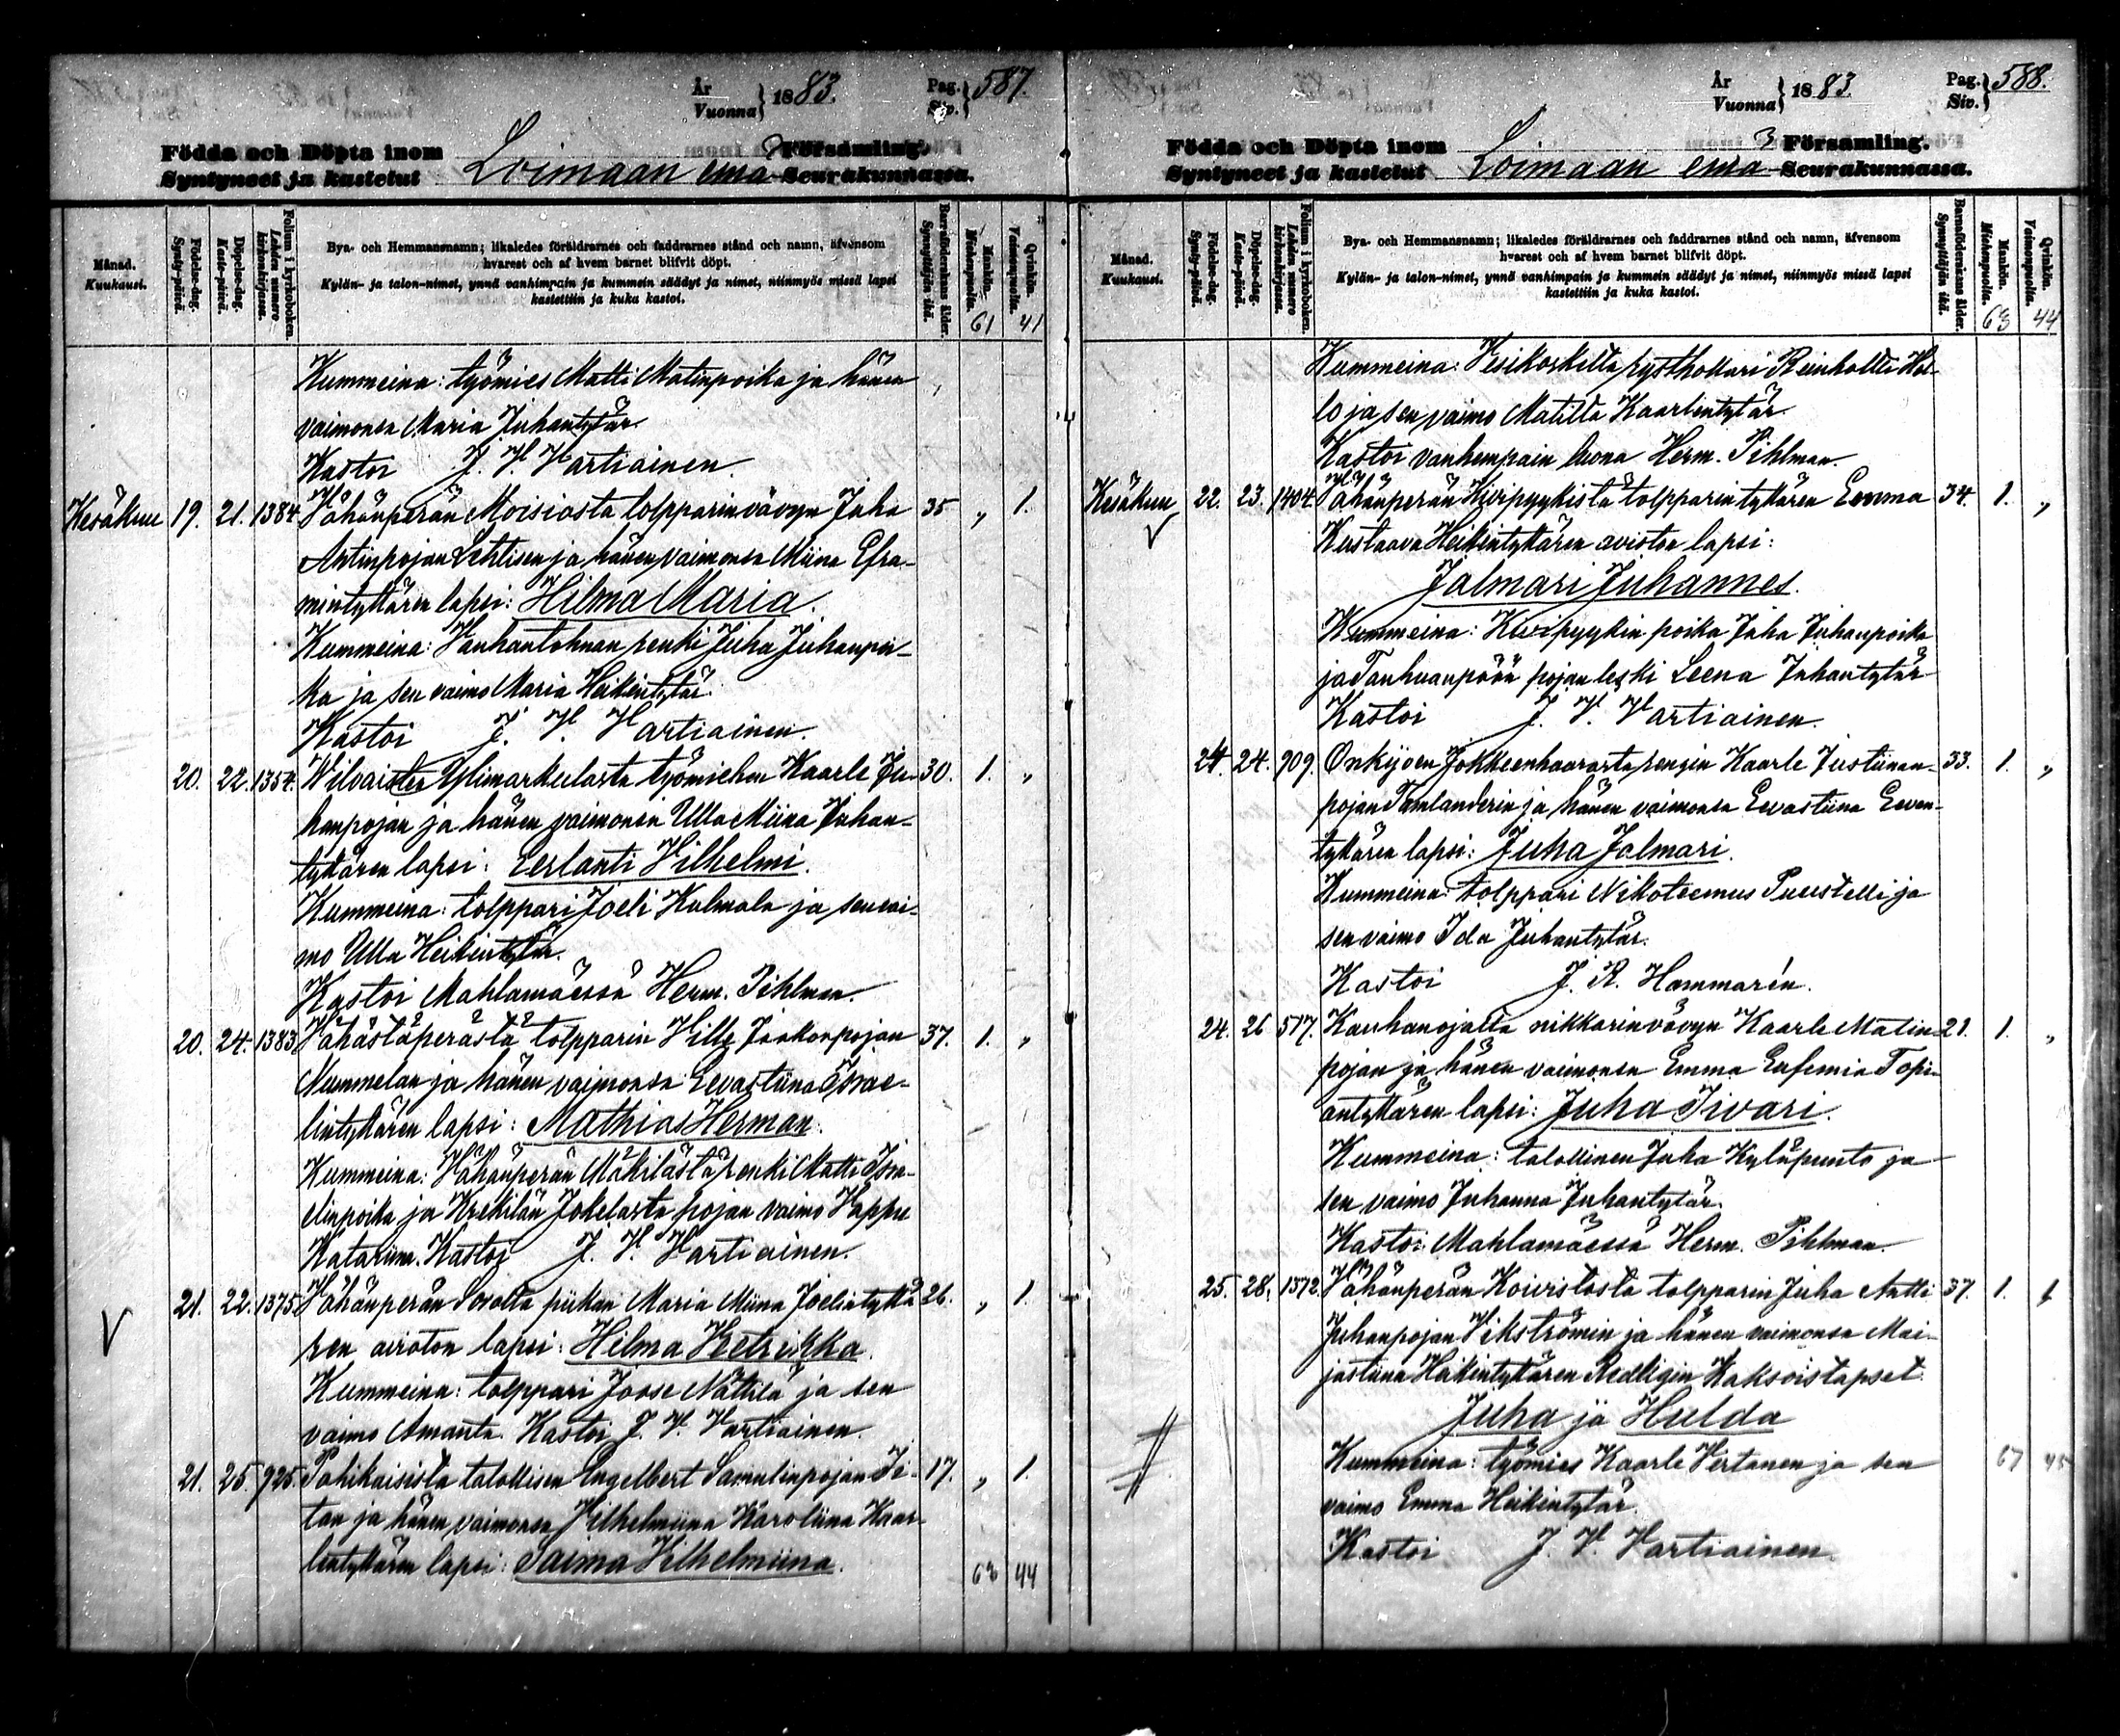 År
Vuonna } 1883.
Pag.
Siv. } 587.
Födda och Döpta inom Församling.
Syntyneet ja kastetut Loimaan emä Seurakunnassa.
Månad.
Kuukausi.
Födelse-dag.
Synty-päivä.
Döpelse-dag.
Kaste-päivä.
Folium i kyrkoboken.
Lehden numero kirkonkirjassa.
Bya- och Hemmansnamn; likaledes föräldrarnes och faddrarnes stånd och namn, äfvensom
hvarest och af hvem barnet blifvit döpt.
Kylän- ja talon-nimet, ynnä vanhimpain ja kummein säädyt ja nimet, niinmyös missä lapsi
kastettiin ja kuka kastoi.
Barnaföderskans ålder.
Synnyttäjän ikä.
Mankön.
Miehenpuolia.
Qvinkön.
Vaimonpuolia.
61 41
Kummeina: työmies Matti Matinpoika ja hänen
vaimonsa Maria Juhantytär.
Kastoi J. V. Vartiainen
Kesäkuu 19. 21. 1384 Vähänperän Moisiosta tolpparin vävyn Juha 35 „ 1.
Antinpojan Lehtisen ja hänen vaimonsa Miina Efra-
mintyttären lapsi: Hilma Maria.
Kummeina: Vanhantohnan renki Juha Juhanpoi-
ka ja sen vaimo Maria Heikintytär.
Kastoi J. V. Vartiainen.
20. 22. 1354. Wilvaisten Ylimarkulasta työmiehen Kaarle Ju- 30. 1. „
hanpojan ja hänen vaimonsa Ulla Miina Juhan-
tyttären lapsi: Eerlanti Vilhelmi.
Kummeina: tolppari Joeli Kulmala ja sen vai-
mo Ulla Heikintytär.
Kastoi Mahlamäessä Herm. Pihlman.
20. 24. 1383 Vähästäperästä tolpparin Ville Jaakonpojan 37. 1. „
Nummelan ja hänen vaimonsa Eevastiina Israe-
lintyttären lapsi: Mathias Herman.
Kummeina: Vähänperän Mäkilästä renki Matti Isra-
elinpoika ja Krekilän Jokelasta pojan vaimo Vappu
Katariina. Kastoi J. V. Vartiainen.
V 21. 22. 1375 Vähänperän Sorolta piikan Maria Miina Joelintyttä 26. „ 1.
ren avioton lapsi: Hilma Hetrikka.
Kummeina: tolppari Joose Nättilä ja sen
vaimo Amanta. Kastoi J. V. Vartiainen.
21. 25. 925. Pahikaisista talollisen Engelbert Samulinpojan 17. „ 1.
tan ja hänen vaimonsa Vilhelmiina Karoliina Kaar-
lentyttären lapsi: Saima Vilhelmiina.
63 44
År
Vuonna } 1883.
Pag.
Siv. } 588.
Födda och Döpta inom Församling.
Syntyneet ja kastetut Loimaan emä Seurakunnassa.
Månad.
Kuukausi.
Födelse-dag.
Synty-päivä.
Döpelse-dag.
Kaste-päivä.
Folium i kyrkoboken.
Lehden numero kirkonkirjassa.
Bya- och Hemmansnamn; likaledes föräldrarnes och faddrarnes stånd och namn, äfvensom
hvarest och af hvem barnet blifvit döpt.
Kylän- ja talon-nimet, ynnä vanhimpain ja kummein säädyt ja nimet, niinmyös missä lapsi
kastettiin ja kuka kastoi.
Barnaföderskans ålder.
Synnyttäjän ikä.
Mankön.
Miehenpuolia.
Qvinkön.
Vaimonpuolia.
63 44
Kummeina: Vesikoskelta rysthollari Reinholtti Hal-
lo ja sen vaimo Matilta Kaarlentytär.
Kastoi vanhempain luona Herm. Pihlman.
Kesäkuu 22. 23. 1404. Vähänperän Kivipyykistä tolpparin tyttären Emma 34. 1. „
V Kustaava Heikintyttären avioton lapsi:
Jalmari Juhannes.
Kummeina: Kivipyykin poika Juha Juhanpoika
ja Tanhuanpään pojan leski Leena Juhantytär
Kastoi J. V. Vartiainen.
24. 24. 909. Onkijoen Jokkeenhaarasta rengin Kaarle Justiinan- 33. 1. „
pojan Tamlanderin ja hänen vaimonsa Eevastiina Eeven-
tyttären lapsi: Juha Jalmari.
Kummeina: tolppari Nikoteemus Puustelli ja
sen vaimo Ida Juhantytär.
Kastoi J. R. Hammarén.
24. 26 517. Kauhanojalta nikkarin vävyn Kaarle Matin- 21. 1. „
pojan ja hänen vaimonsa Emma Eufemia Topi-
antyttären lapsi: Juha Iivari.
Kummeina: talollinen Juha Kyläpunto ja
sen vaimo Juhanna Juhantytär.
Kastoi Mahlamäessä Herm. Pihlman.
25. 28. 1372. Vähänperän Koivistosta tolpparin Juha Antti 37. 1. 1
Juhanpojan Vikströmin ja hänen vaimonsa Mai-
jastiina Heikintyttären Redligin Kaksoislapset
Juha ja Hulda
Kummeina: työmies Kaarle Virtanen ja sen 67 45
vaimo Emma Heikintytär.
Kastoi J. V. Vartiainen.